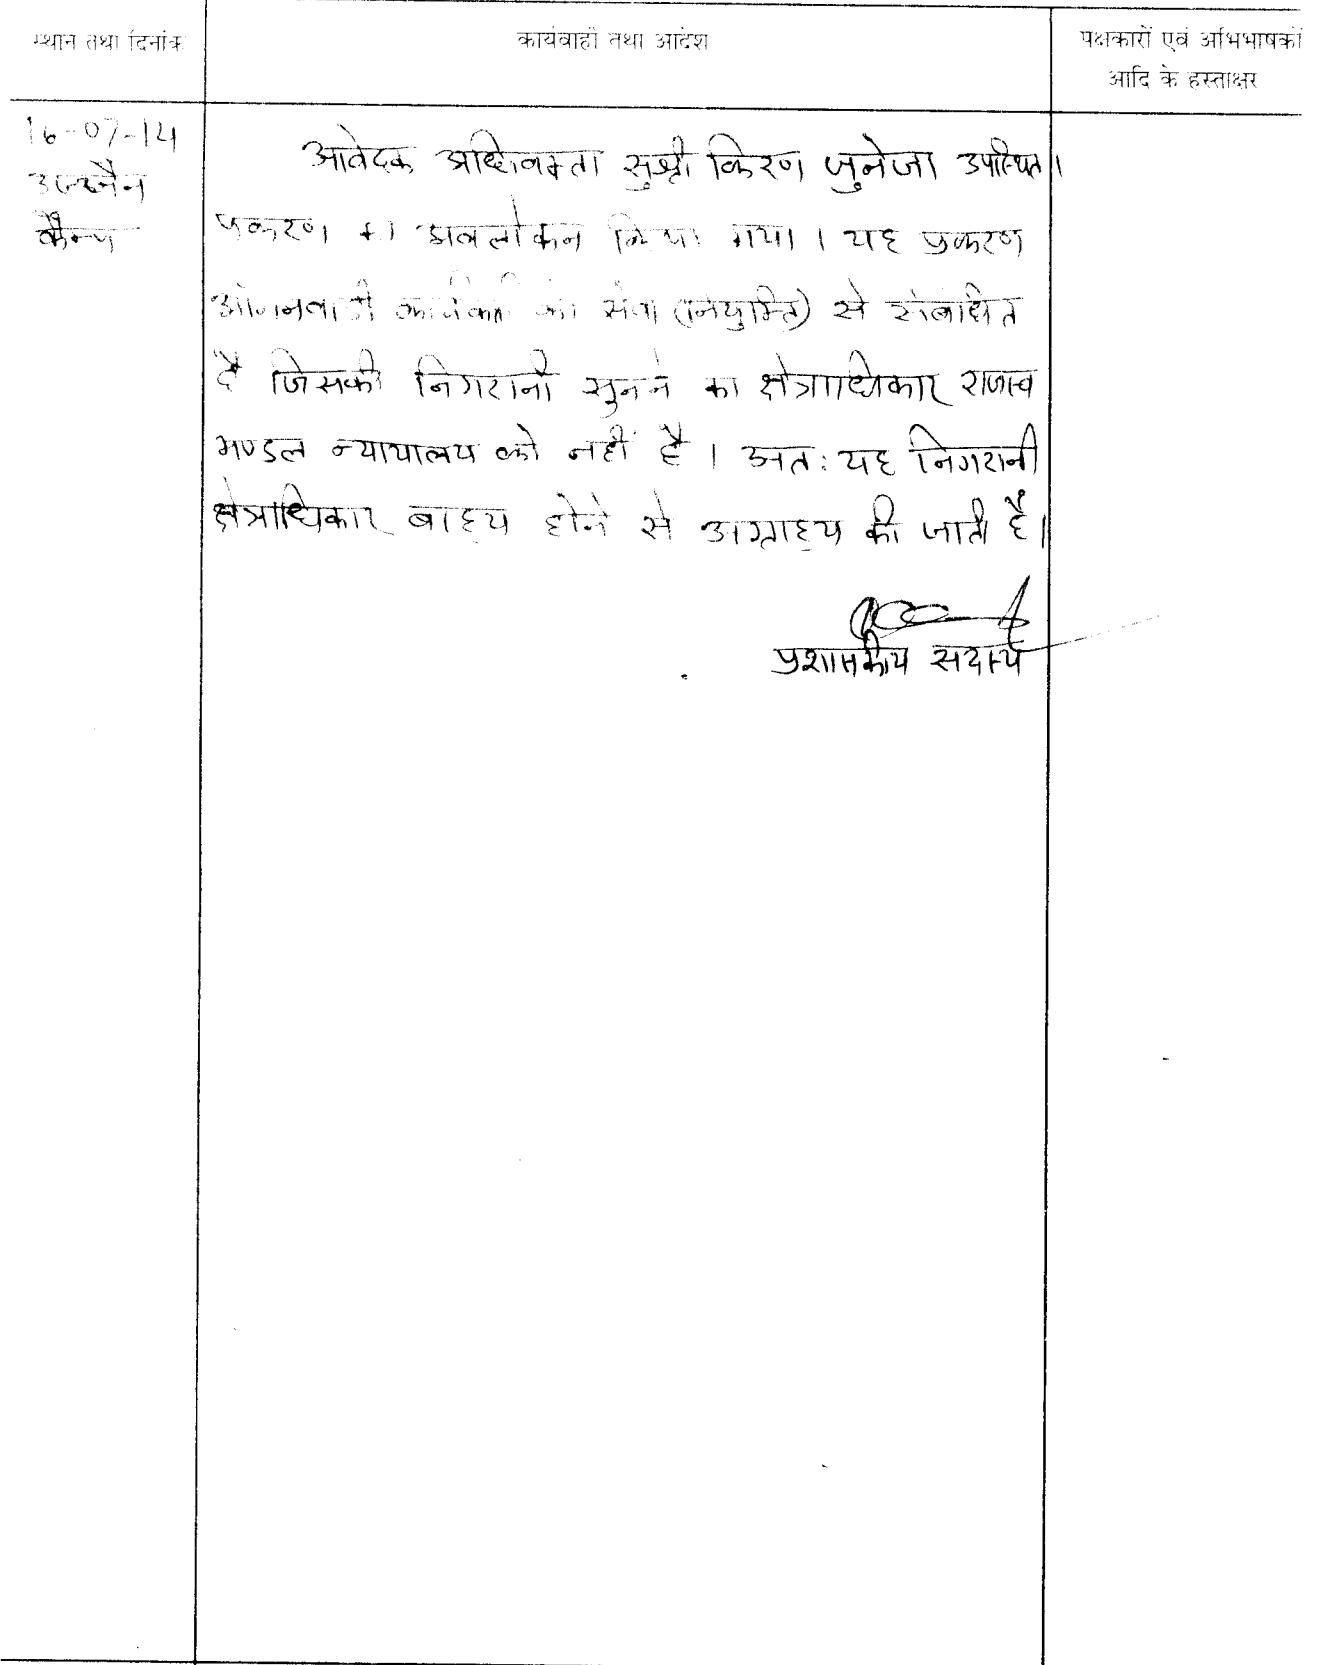 स्थान तथा दिनांक
कार्यवाही तथा आदेश
पक्षकारों एवं अभिभाषकों
आदि के हस्ताक्षर
16-07-14
उज्जैन
कैम्प
आवेदक अधिवक्ता सुश्री किरण जुनेजा उपस्थित।
प्रकरण का अवलोकन किया गया। यह प्रकरण
आंगनवाडी की सेवा (नियुक्ति) से संबंधित
है जिसकी निगरानी सुनने का क्षेत्राधिकार राजस्व
मण्डल न्यायालय को नहीं है। अतः यह निगरानी
क्षेत्राधिकार बाह्य होने से अग्राह्य की जाती है।
प्रशासकीय सदस्य